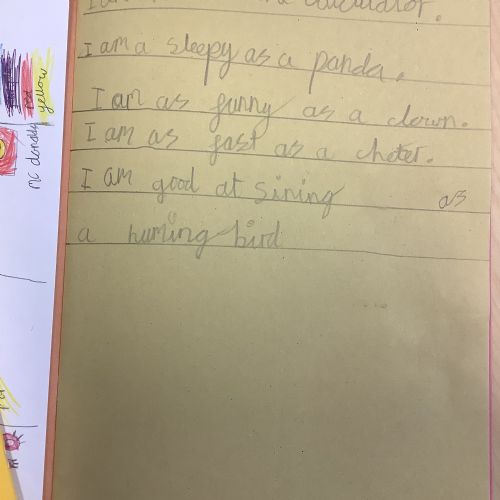 calculator.
I am a sleepy as a panda.
I am as funny as a clown.
I am as fast as a cheter.
I am good at sining as
a huming bird
mc donalds
red
yellow